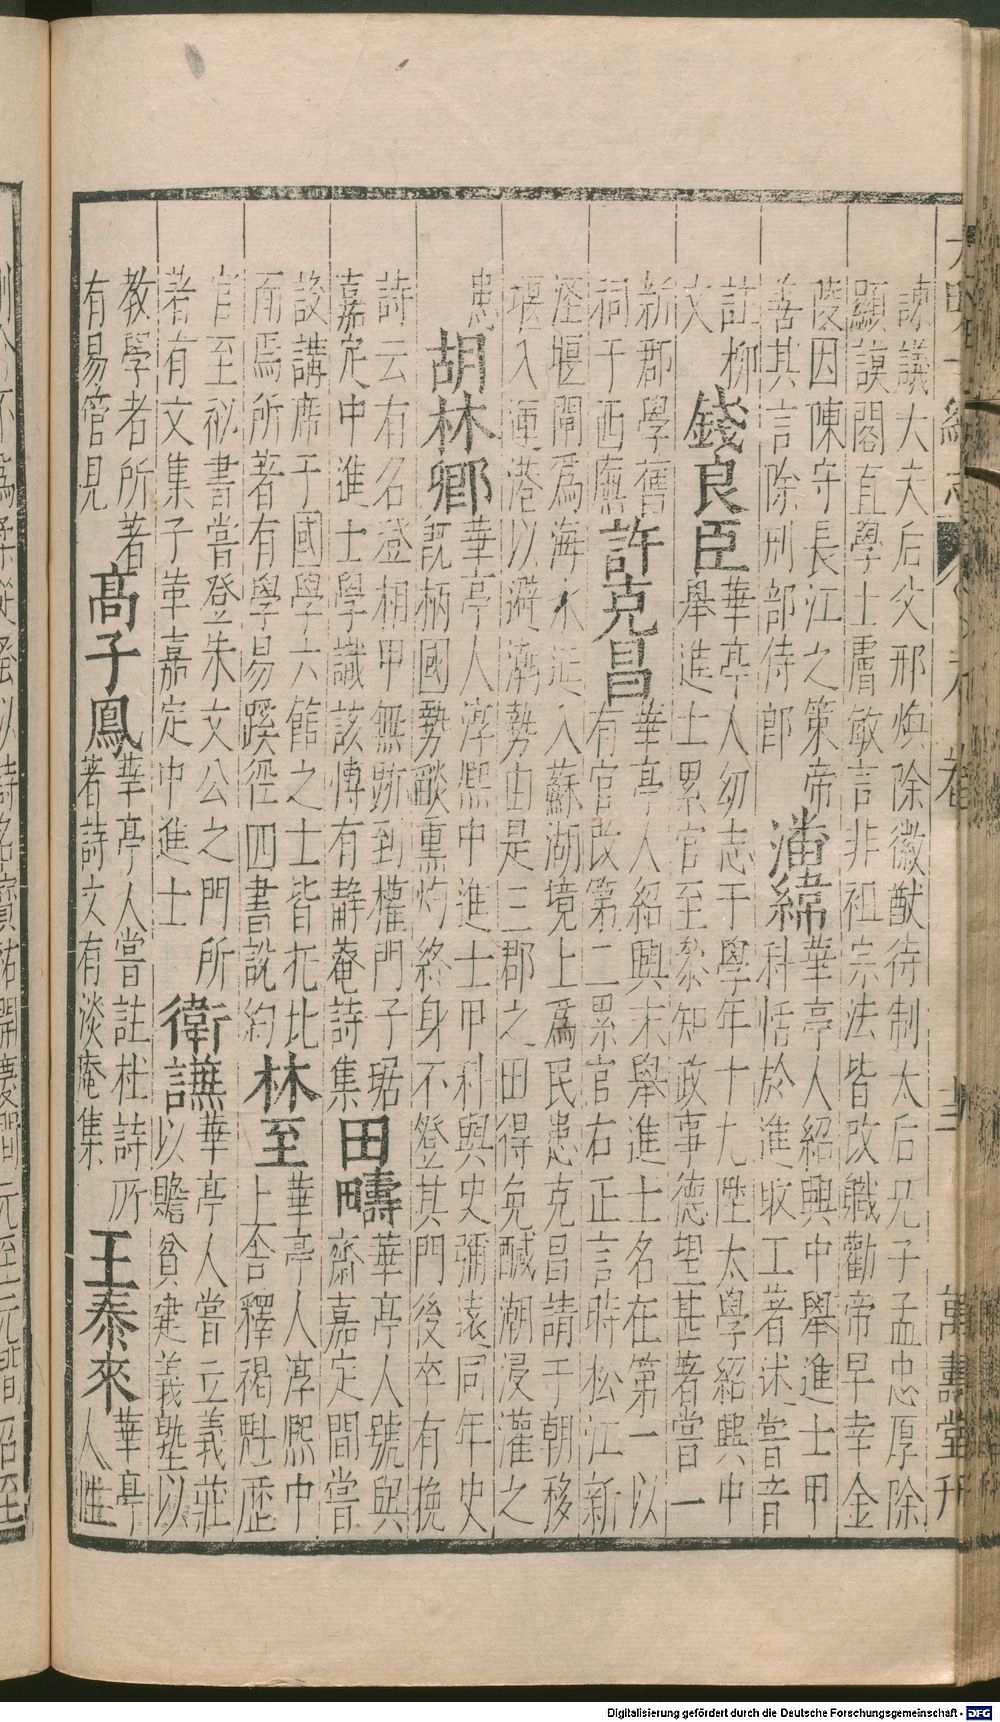 大明一統志 卷 萬壽堂刊
諫議大夫后父邢煥除徽猷待制太后兄子孟忠厚除
顯謨閣直學士膚敏言非祖宗法皆改職勸帝早幸金
陵因陳守長江之策帝
善其言除刑部侍郎
潘緯
華亭人紹興中舉進士甲
科恬於進取工著述嘗音
註柳
文
錢良臣
華亭人幼志于學年十九陞太學紹興中
舉進士累官至參知政事德望甚著嘗一
新郡學舊
祠于西廡
許克昌
華亭人紹興末舉進士名在第一以
有官改第二累官右正言時松江新
涇堰閘爲海水延入蘇湖境上爲民患克昌請于朝移
堰入運港以避潮勢由是三郡之田得免鹹潮浸灌之
患
胡林卿
華亭人淳熙中進士甲科與史彌遠同年史
既柄國勢燄熏灼終身不登其門後卒有挽
詩云有名登相甲無跡到權門子琚
嘉定中進士學識該博有靜菴詩集
田疇
華亭人號與
齋嘉定間嘗
設講席于國學六館之士皆比
面焉所著有學易蹊徑四書說約
林至
華亭人淳熙中
上舍釋褐魁歷
官至祕書嘗登朱文公之門所
著有文集子革嘉定中進士
衛謙
華亭人嘗立義莊
以贍貧建義塾以
教學者所著
有易管見
高子鳳
華亭人嘗註杜詩所
著詩文有淡菴集
王泰來
華亭
人惟
Digitalisierung gefördert durch die Deutsche Forschungsgemeinschaft - DFG